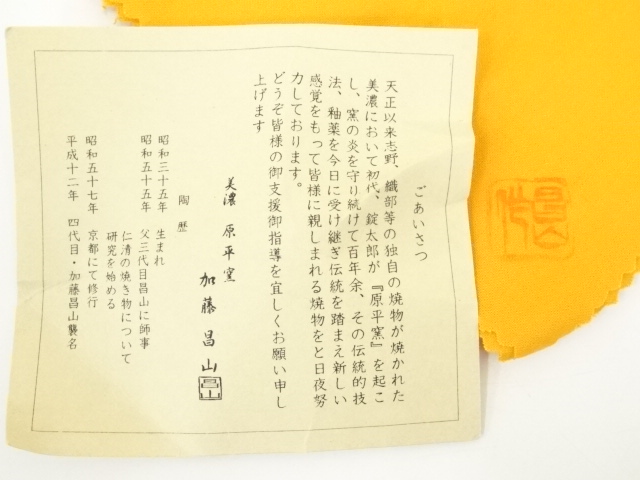 ごあいさつ
天正以来志野、織部等の独自の焼物が焼かれた
美濃において初代、錠太郎が『原平窯』を起こ
し、窯の炎を守り続けて百年余、その伝統的技
法、釉薬を今日に受け継ぎ伝統を踏まえ新しい
感覚をもって皆様に親しまれる焼物をと日夜努
力しております。
どうぞ皆様の御支援御指導を宜しくお願い申し
上げます
美濃 原平窯
加藤昌山
陶歴
昭和三十五年 生まれ
昭和五十五年 父三代目昌山に師事
仁清の焼き物について
研究を始める
昭和五十七年 京都にて修行
平成十二年 四代目・加藤昌山襲名